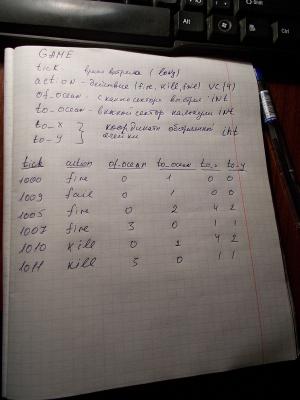 GAME
tick время выстрела (long)
action - действие (fire, kill, fail) VC(4)
of_ocean - с какого сектора выстрел INt
to_ocean - в какой сектор int
to_x } координаты int
to_y } ячейки
tick action of_ocean to_ocean to_x to_y
1000 fire 0 1 0 0
1003 fail 0 1 0 0
1005 fire 0 2 4 2
1007 fire 3 0 1 1
1010 kill 0 2 4 2
1011 kill 3 0 1 1